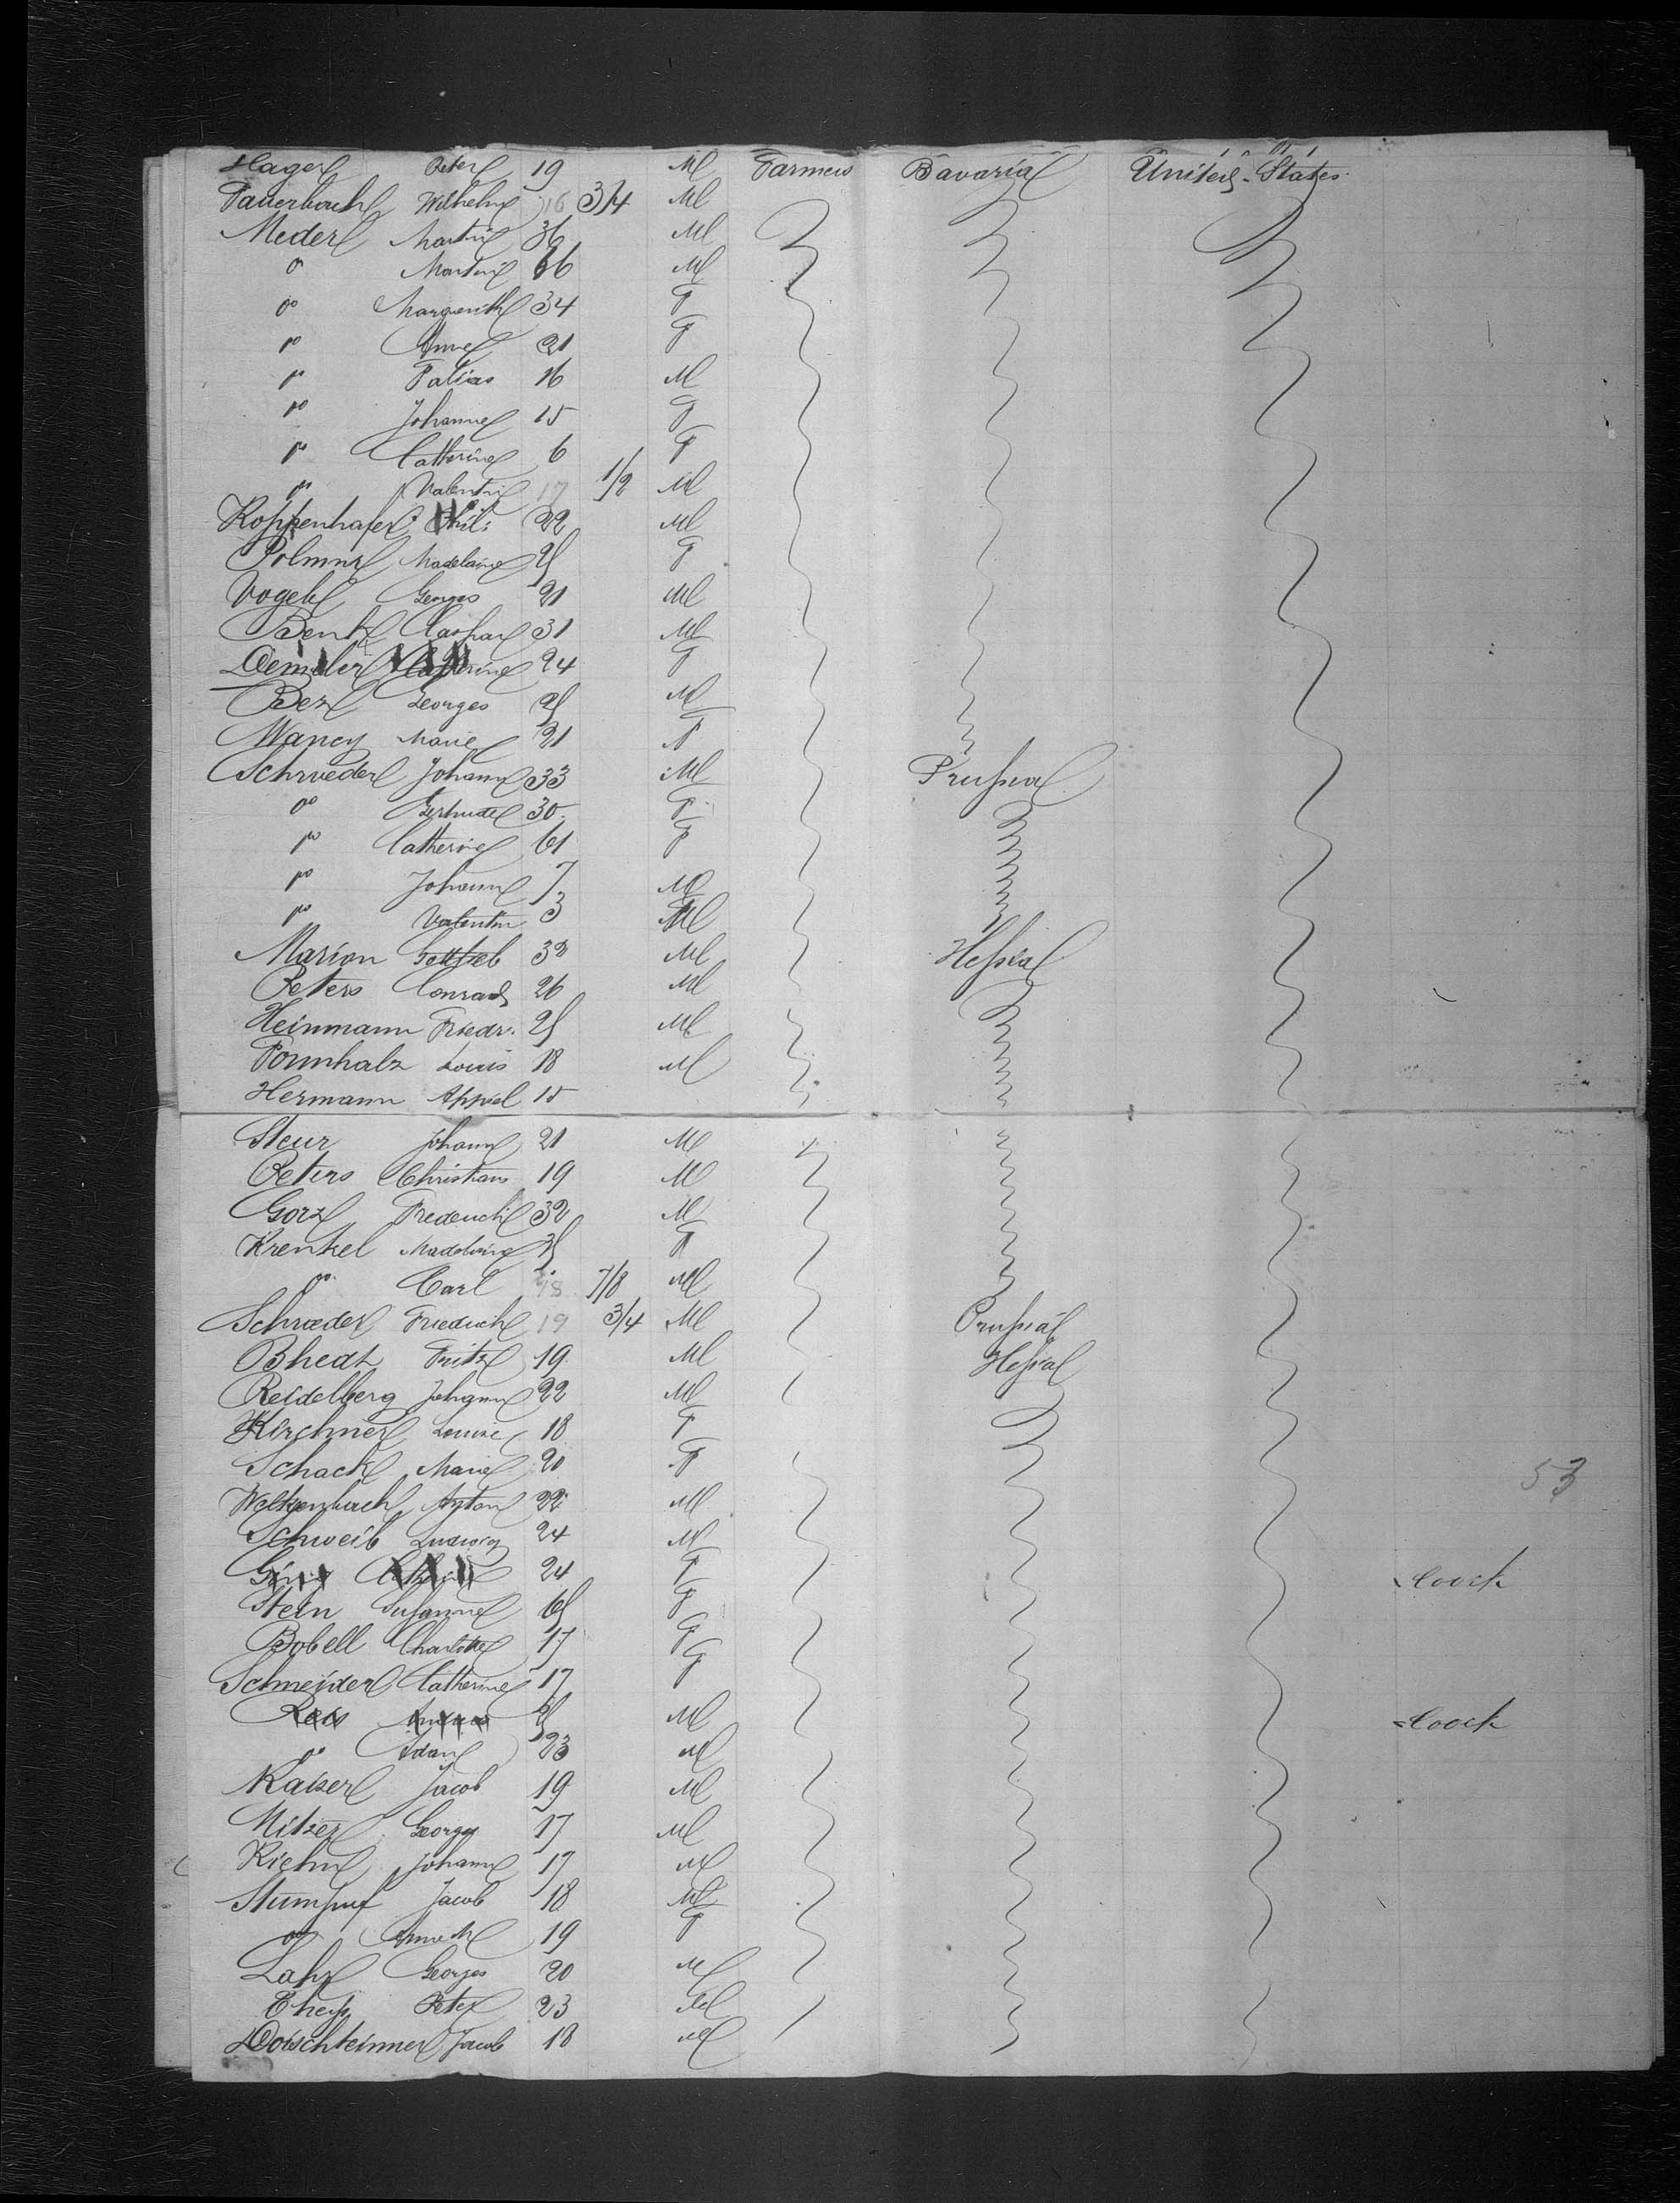 Hager Peter 19 M Farmers Bavaria United States
Pauerbach Wilhelm 16 3/4 M
Meder Martin 36 M
" Martin 66 M
" Marguerith 34 F
" Anne 21 F
" Tobias 16 M
" Johanne 15 F
" Catherine 6 F
" Valentin 17 1/2 M
Koppenhafer Phil: 22 M
Madelaine 25 F
Vogel Georges 21 M
Bentz Caspar 31 M
Demmler Catherine 24 F
Bez Georges 25 M
Mancy Marie 21 F
Schroeder Johann 33 M Prussia
" Gertrude 30 F
" Catherine 61 F
" Johann 7 M
" Valentin 3 M
Marion Gottlieb 32 M Hessia
Peters Conrad 26 M
Heinmann Friedr. 25 M
Pormhalz Louis 18 M
Hermann Appel 15
Steur Johann 21 M
Peters Christians 19 M
Gorz Frederich 32 M
Krenkel Madelaine 35 F
" Carl 18 7/8 M
Schroeder Friedrich 19 3/4 M Prussia
Bhedt Fritz 19 M Hessia
Reidelberg Johann 22 M
Kirchner Louise 18 F
Schack Marie 20 F
53
Welkenbach Anton 22 M
Schweib Ludwig 24 M
24 F Coock
Stein Susanne 65 F
Bobell Charlotte 17 F
Schneider Catherine 17 F
Reis 25 M Coock
" Adam 23 M
Kaiser Jacob 19 M
Mitzer George 17 M
Kiehn Johann 17 M
Stumpf Jacob 18 M
" Anne M 19 F
Lahr Georges 20 M
Peter 23 M
Dotschteimer Jacob 18 M